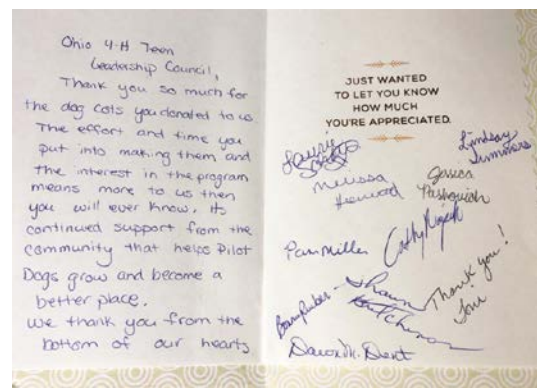 Ohio 4-H Teen
Leadership Council,
Thank you so much for
the dog cots you donated to us
The effort and time you
put into making them and
the interest in the program
means more to us then
you will ever know. Its
continued support from the
community that helps Pilot
Dogs grow and become a
better place.
We thank you from the
bottom of our hearts
JUST WANTED
TO LET YOU KNOW
HOW MUCH
YOU'RE APPRECIATED.
Laurie
Lindsay
Summers
Melissa
Jessica
Pam Miller
Cathy
Thank you!
Shawn
Hutchinson
Dent